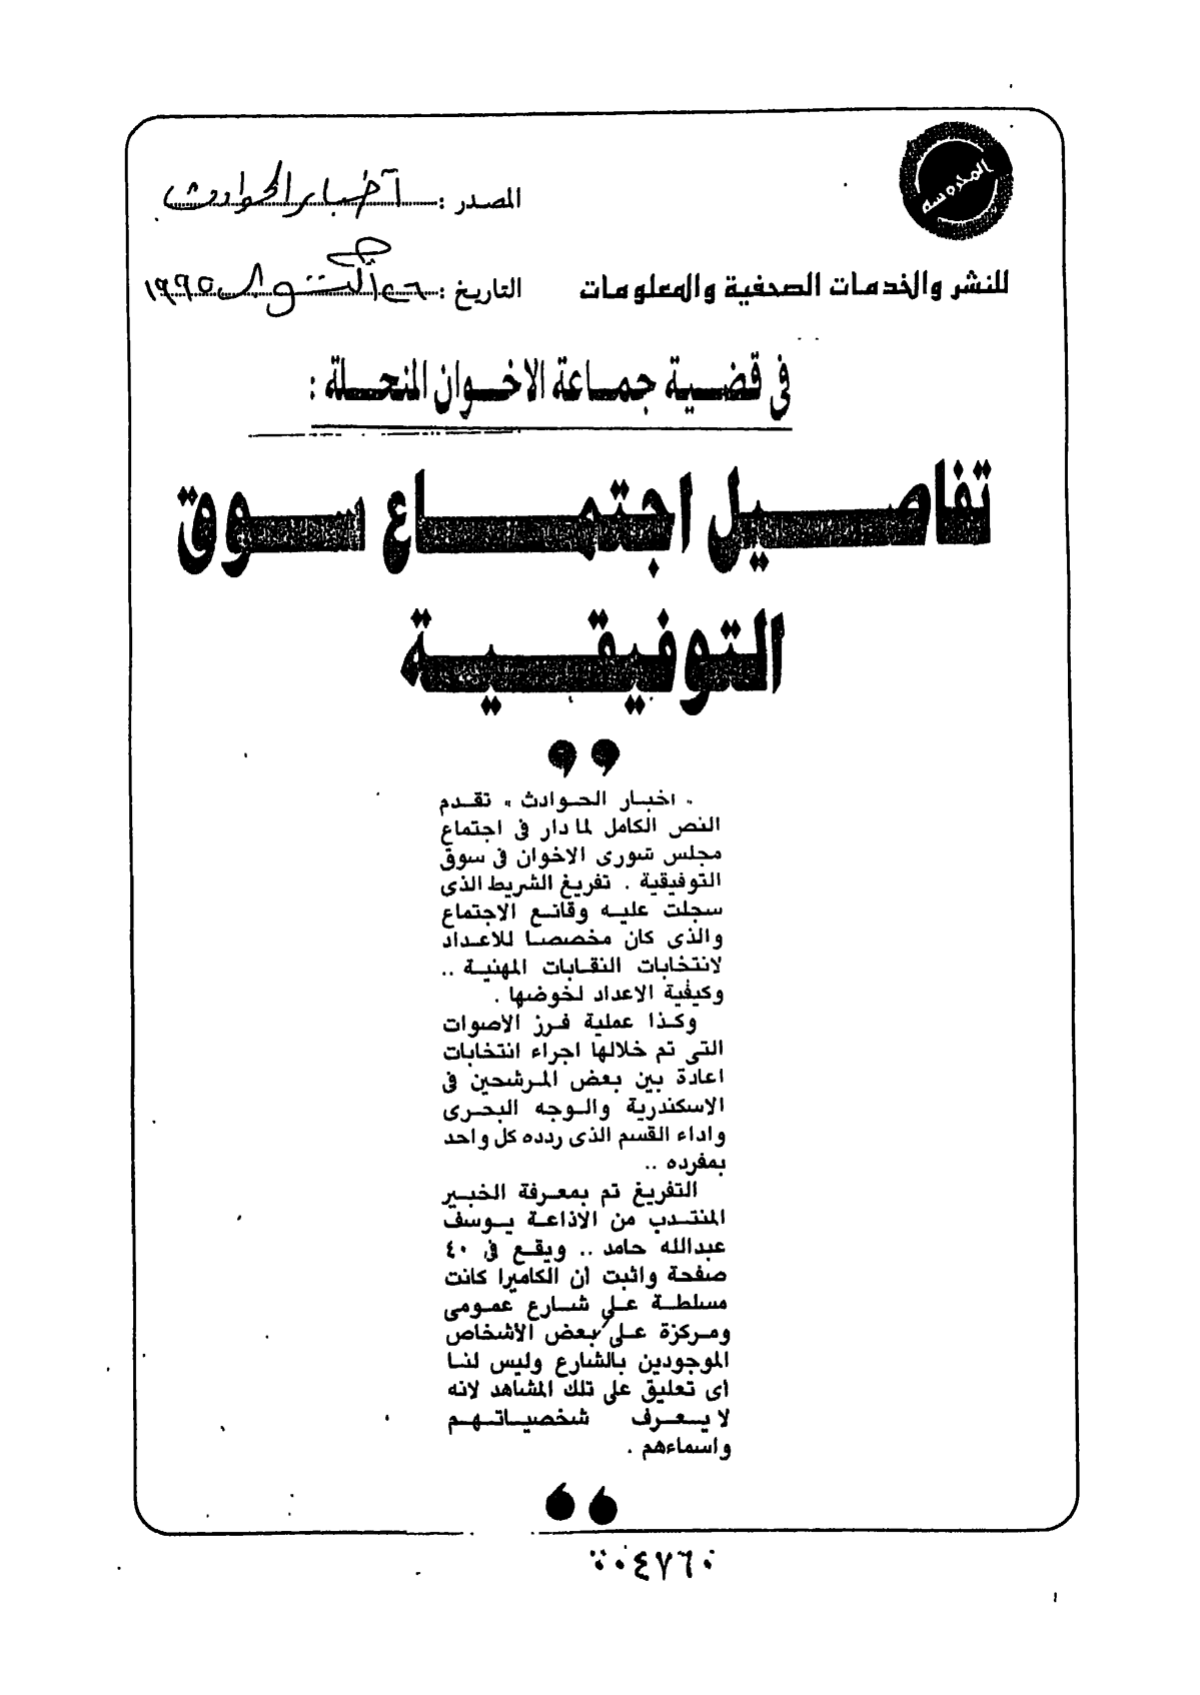 المحروسة
المصدر : أخبار الحوادث
للنشر والخدمات الصحفية والمعلومات
التاريخ : ٢٦ أكتوبر ١٩٩٥
فى قضية جماعة الاخوان المنحلة :
تفاصيل اجتماع سوق
التوفيقية
" اخبار الحوادث " تقدم
النص الكامل لما دار فى اجتماع
مجلس شورى الاخوان فى سوق
التوفيقية . تفريغ الشريط الذى
سجلت عليه وقائع الاجتماع
والذى كان مخصصا للاعداد
لانتخابات النقابات المهنية ..
وكيفية الاعداد لخوضها .
وكذا عملية فرز الاصوات
التى تم خلالها اجراء انتخابات
اعادة بين بعض المرشحين فى
الاسكندرية والوجه البحرى
واداء القسم الذى ردده كل واحد
بمفرده ..
التفريغ تم بمعرفة الخبير
المنتدب من الاذاعة يوسف
عبدالله حامد .. ويقع فى ٤٠
صفحة واثبت أن الكاميرا كانت
مسلطة على شارع عمومى
ومركزة على بعض الأشخاص
الموجودين بالشارع وليس لنا
اى تعليق على تلك المشاهد لانه
لا يعرف شخصياتهم
واسماءهم .